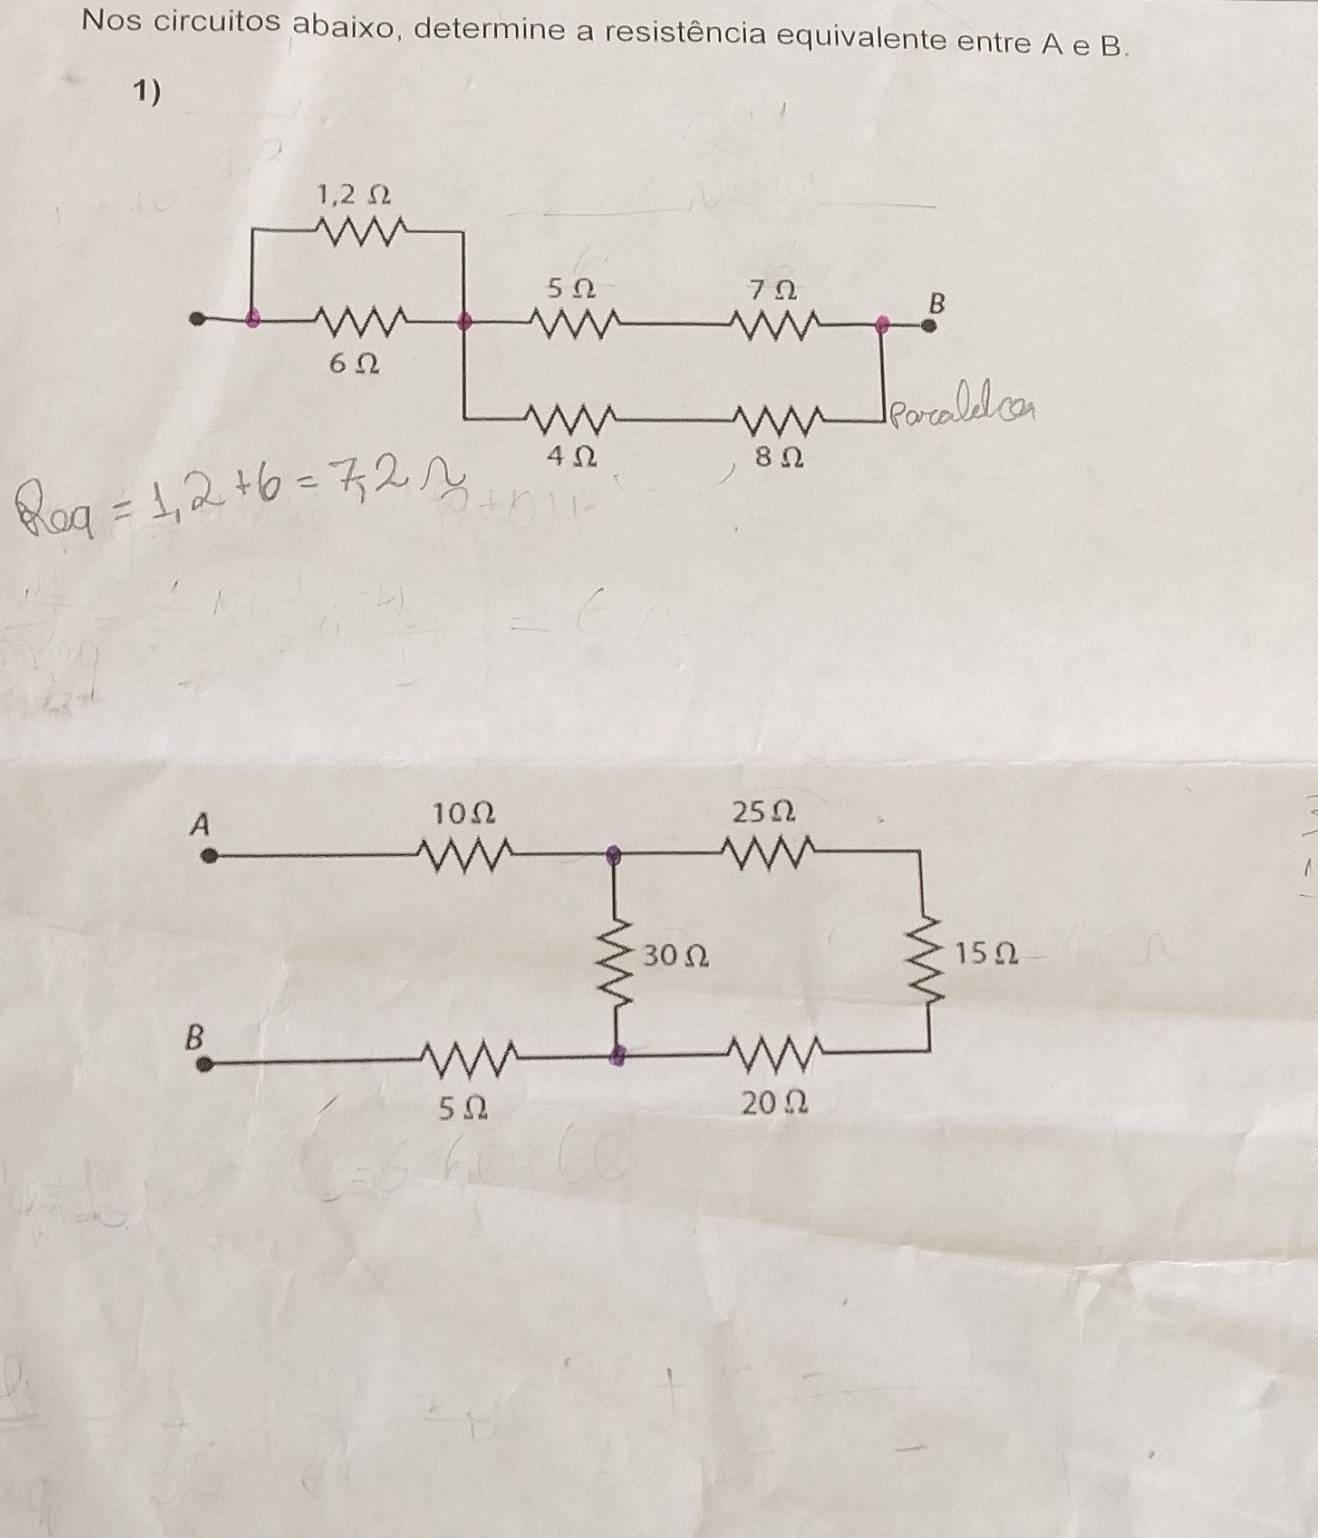 Nos circuitos abaixo, determine a resistência equivalente entre A e B.
1)
1,2 Ω
5 Ω
7 Ω
B
6 Ω
4 Ω
8 Ω
Req = 1,2+6 = 7,2 Ω
A
10 Ω
25 Ω
30 Ω
15 Ω
B
5 Ω
20 Ω